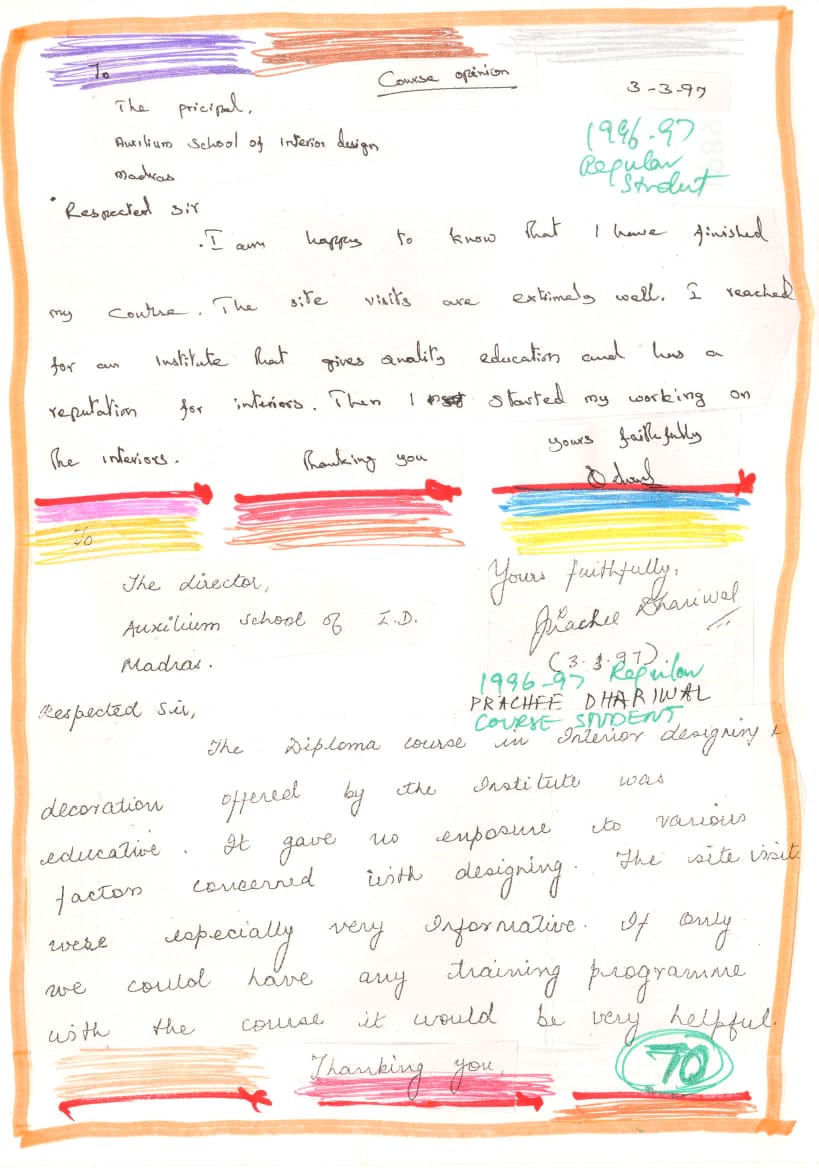 To
Course opinion
3-3-97
The pricipal,
Auxilium School of Interior design
Madras
1996-97
Regular
Student
Respected Sir
I am happy to know that I have finished
my course. The site visits are extrimely well. I reached
for an institute that gives quality education and has a
reputation for interiors. Then I started my working on
the interiors. Thanking you
yours faithfully
To
The director,
Auxilium School of I.D.
Madras.
Yours faithfully,
Prachee Dhariwal
(3.3.97)
1996-97 Regular
PRACHEE DHARIWAL
COURSE STUDENT
Respected Sir,
The Diploma course in Interior designing &
decoration offered by the Institute was
educative. It gave us exposure to various
factors concerned with designing. The site visit
were especially very Informative. If only
we could have any training programme
with the course it would be very helpful.
Thanking you,
70